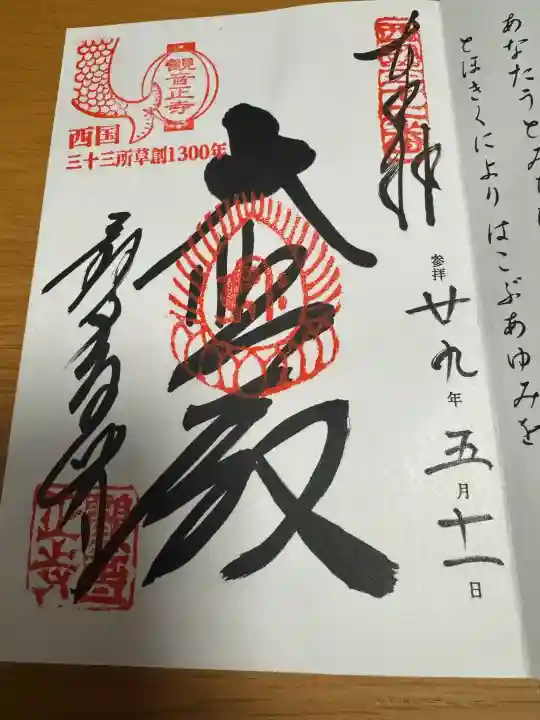 あなたうと
とほきくにより はこぶあゆみを
奉拝
参拝 廿九年五月十一日
大悲殿
観音正寺
観音正寺
西国
三十三所草創1300年
観音正寺